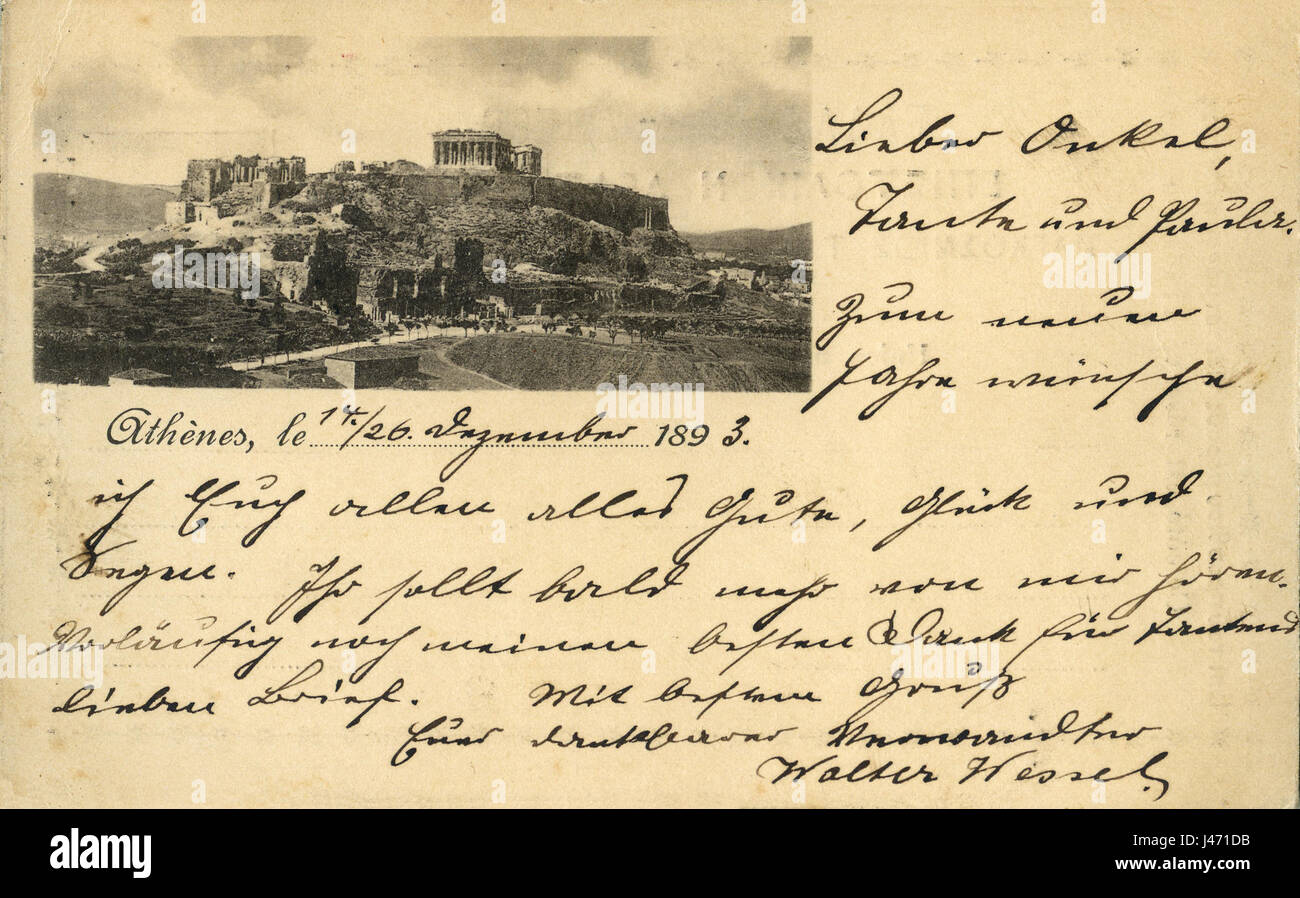 Lieber Onkel,
Tante und Paula.
Zum neuen
Jahre wünsche
Athènes, le 14./26. Dezember 1893.
ich Euch allen alles Gute, Glück und
Segen. Ihr sollt bald mehr von mir hören.
Vorläufig noch meinen besten Dank für Tantens
lieben Brief. Mit bestem Gruß
Euer dankbarer Verwandter
Walter Wessel.
alamy
alamy stock photo
Image ID: J471DB
www.alamy.com